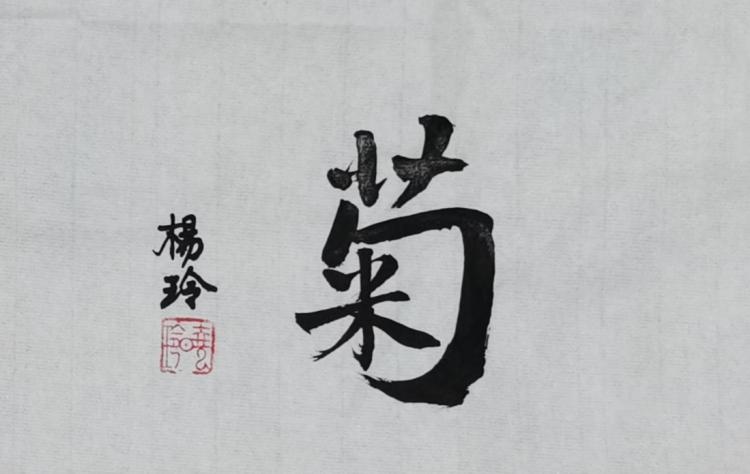 菊
楊玲